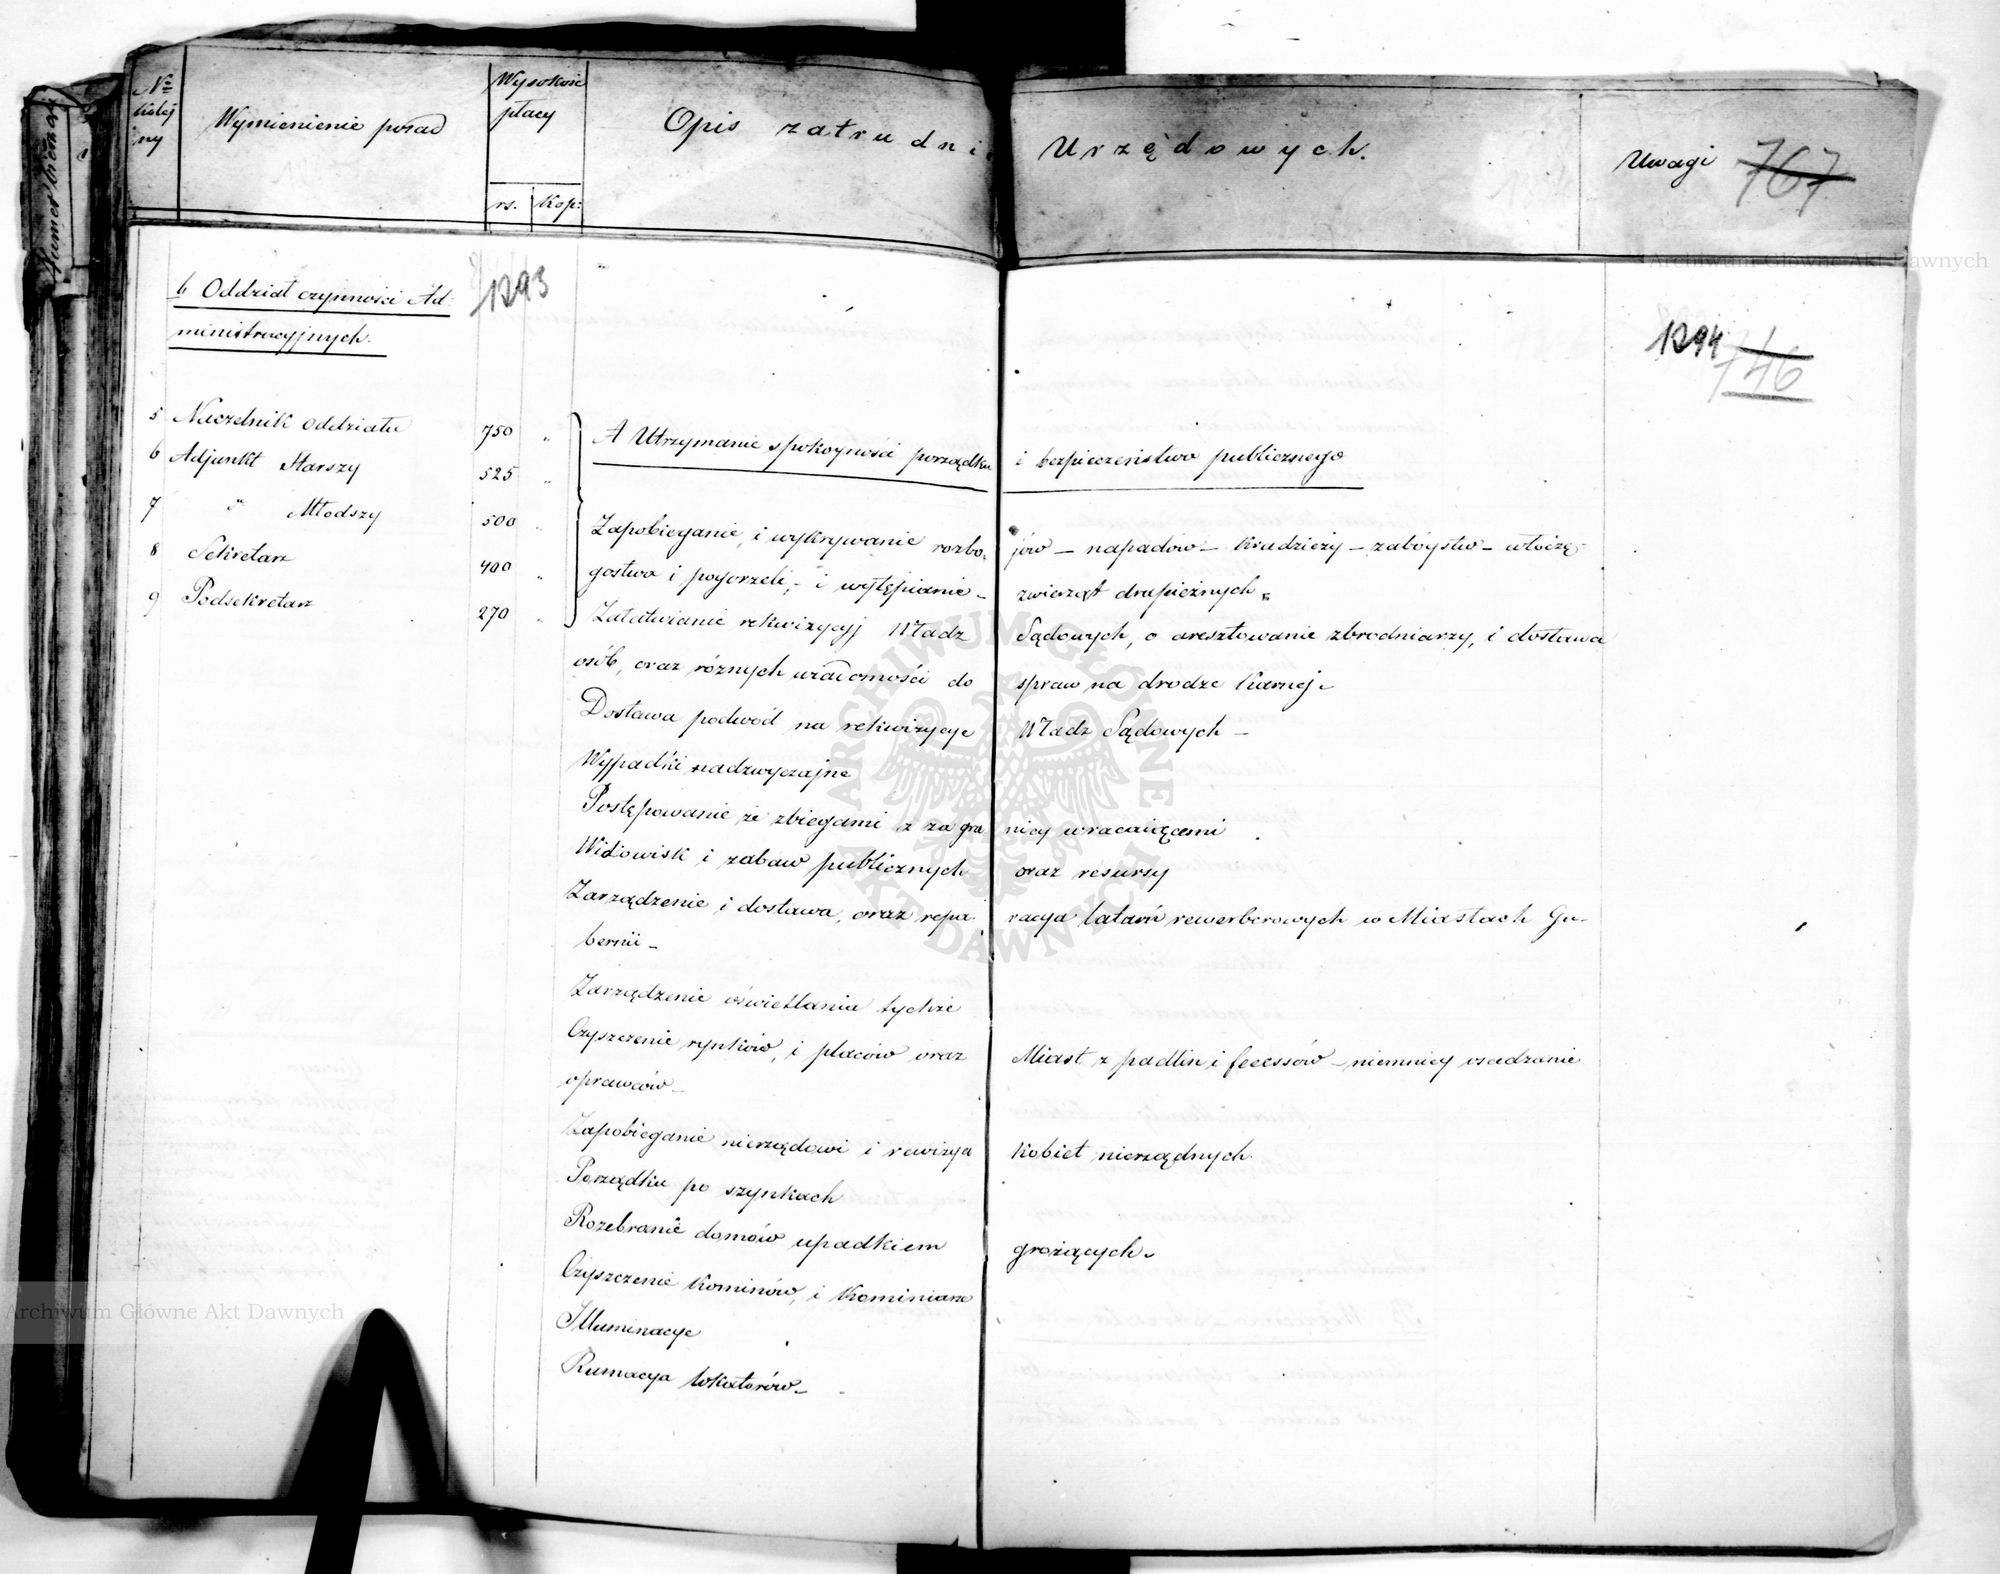 № kolej ny
Wymienienie posad
Wysokość płacy
rs. Kop:
Opis zatrudnie Urzędowych.
Uwagi
767
1293
1294
746
b Oddział czynności Ad-
ministracyjnych.
5 Naczelnik oddziału 750 "
6 Adjunkt Starszy 525 "
7 " Młodszy 500 "
8 Sekretarz 400 "
9 Podsekretarz 270 "
A Utrzymanie spokoyności porządku i bezpieczeństwa publicznego
Zapobieganie, i wykrywanie rozbo- jów – napadów – kradzieży – zabóystw – włóczę-
gostwa i pogorzeli, – i wytępianie – zwierząt drapieżnych.
Załatwianie rekwizycyj Władz Sądowych, o aresztowanie zbrodniarzy, i dostawa
osób, oraz różnych wiadomości do spraw na drodze karnej.
Dostawa podwód na rekwizycye Władz Sądowych –
Wypadki nadzwyczajne
Postępowanie ze zbiegami z za gra nicy wracaiącemi
Widowisk i zabaw publicznych oraz resursy
Zarządzenie i dostawa, oraz repa- racya latarń rewerberowych w Miastach Gu-
bernii –
Zarządzenie oświetlania tychże
Czyszczenie rynków, i placów oraz Miast z padlin i fecessów – niemniey osadzanie
oprawców –
Zapobieganie nierządowi i rewizya kobiet nierządnych
Porządku po szynkach
Rozebranie domów upadkiem grożących.
Czyszczenie kominów, i Kominiarze
Illuminacye
Rumacya lokatorów –
Archiwum Główne Akt Dawnych
Archiwum Główne Akt Dawnych
ARCHIWUM GŁÓWNE AKT DAWNYCH